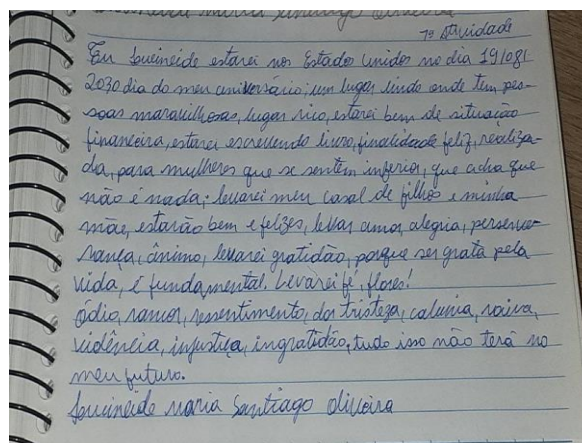 Maria Santiago Oliveira
7ª Atividade
Eu Lucineide estarei nos Estados Unidos no dia 19/08/
2030 dia do meu aniversário; um lugar lindo onde tem pes-
soas maravilhosas, lugar rico, estarei bem de situação
financeira, estarei escrevendo livro, finalidade feliz, realiza-
da, para mulheres que se sentem inferior, que acha que
não é nada; levarei meu casal de filhos e minha
mãe, estarão bem e felizes, levar amor, alegria, perseve-
rança, ânimo, levarei gratidão, porque ser grata pela
vida, é fundamental. Levarei fé, flores!
Ódio, rancor, ressentimento, dor tristeza, calunia, raiva,
injustiça, ingratidão, tudo isso não terá no
meu futuro.
Lucineide maria Santiago oliveira